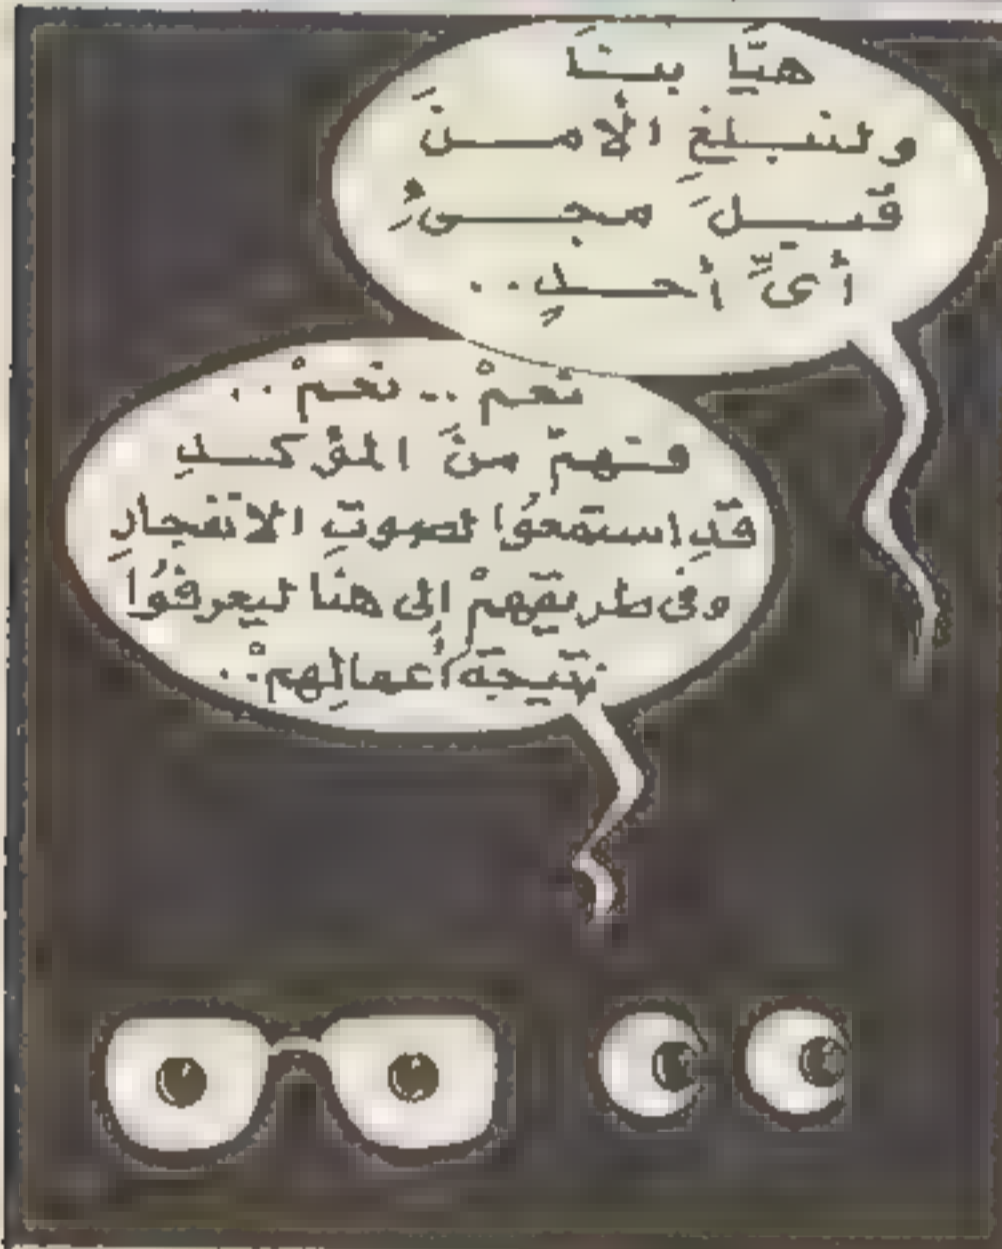 هيَّا بنَا
ولنبلغِ الأمنَ
قبلَ مجىءِ
أىِّ أحدٍ..
نعمْ .. نعمْ ..
فهمْ منَ المؤكدِ
قدِ استمعُوا لصوتِ الانفجارِ
وفى طريقهمْ إلى هنَا ليعرفُوا
نتيجة أعمالِهمْ..